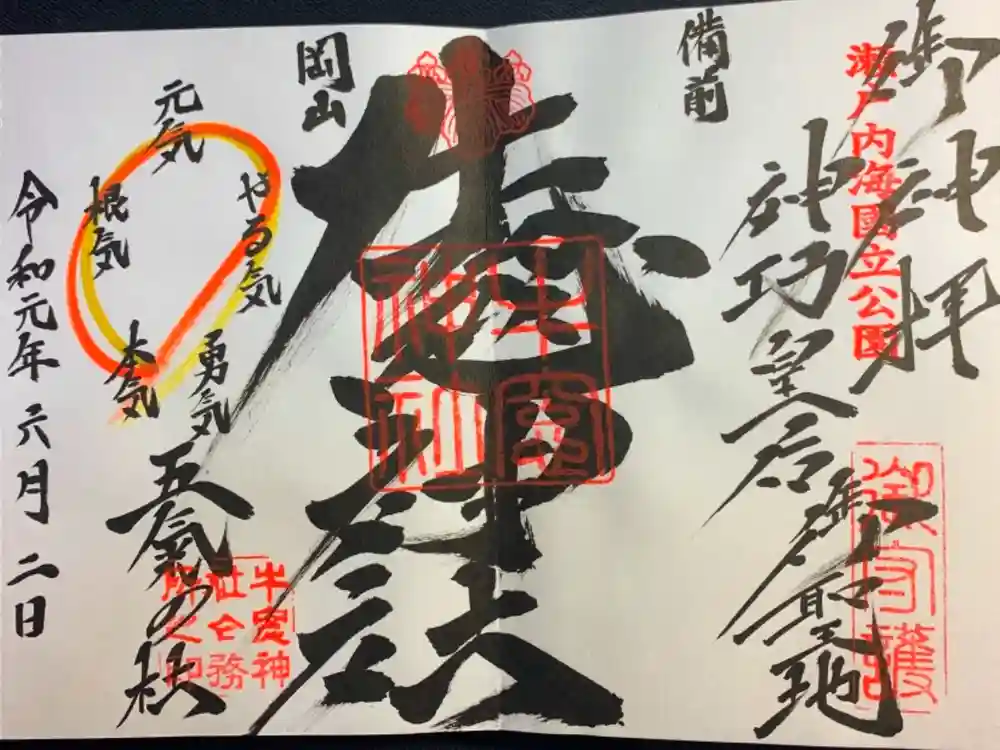 御神拝
瀬戸内海國立公園
神功皇后御聖地
御守護
備前
牛窓神社
牛窓
神社
岡山
元気
やる気
根気
勇気
本気
五氣の秋
牛窓神
社公務
所之印
令和元年六月二日